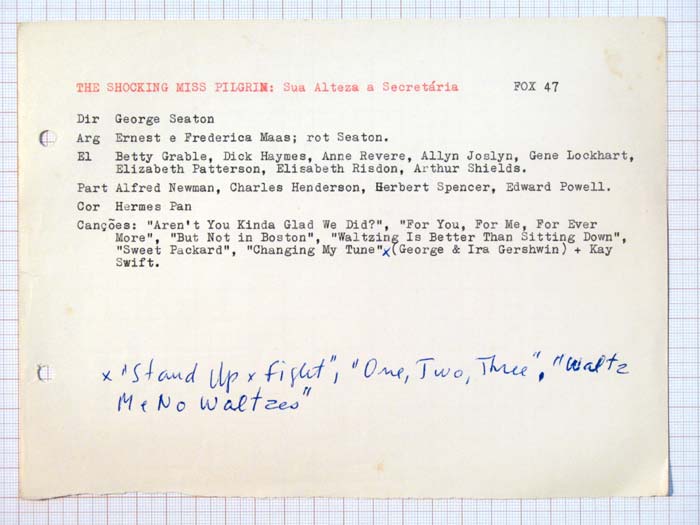 THE SHOCKING MISS PILGRIM: Sua Alteza a Secretária FOX 47
Dir George Seaton
Arg Ernest e Frederica Maas; rot Seaton.
El Betty Grable, Dick Haymes, Anne Revere, Allyn Joslyn, Gene Lockhart,
Elizabeth Patterson, Elisabeth Risdon, Arthur Shields.
Part Alfred Newman, Charles Henderson, Herbert Spencer, Edward Powell.
Cor Hermes Pan
Canções: "Aren't You Kinda Glad We Did?", "For You, For Me, For Ever
More", "But Not in Boston", "Waltzing Is Better Than Sitting Down",
"Sweet Packard", "Changing My Tune"x(George & Ira Gershwin) + Kay
Swift.
x "Stand Up x Fight", "One, Two, Three", "Waltz
Me No Waltzes"